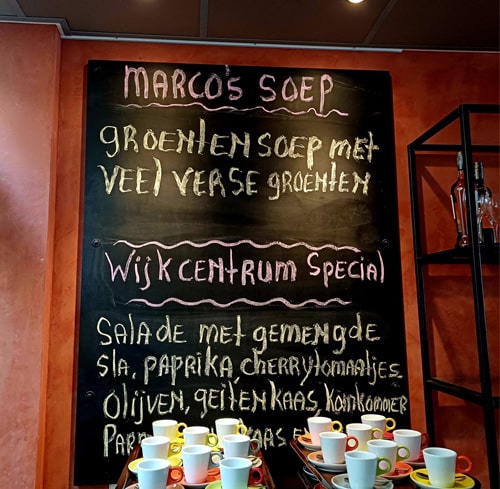 MARCO'S SOEP
GROENTEN SOEP MET
VEEL VERSE GROENTEN
WIJKCENTRUM SPECIAL
SALADE MET GEMENGDE
SLA, PAPRIKA, CHERRYTOMAATJES
OLIJVEN, GEITENKAAS, KOMKOMMER